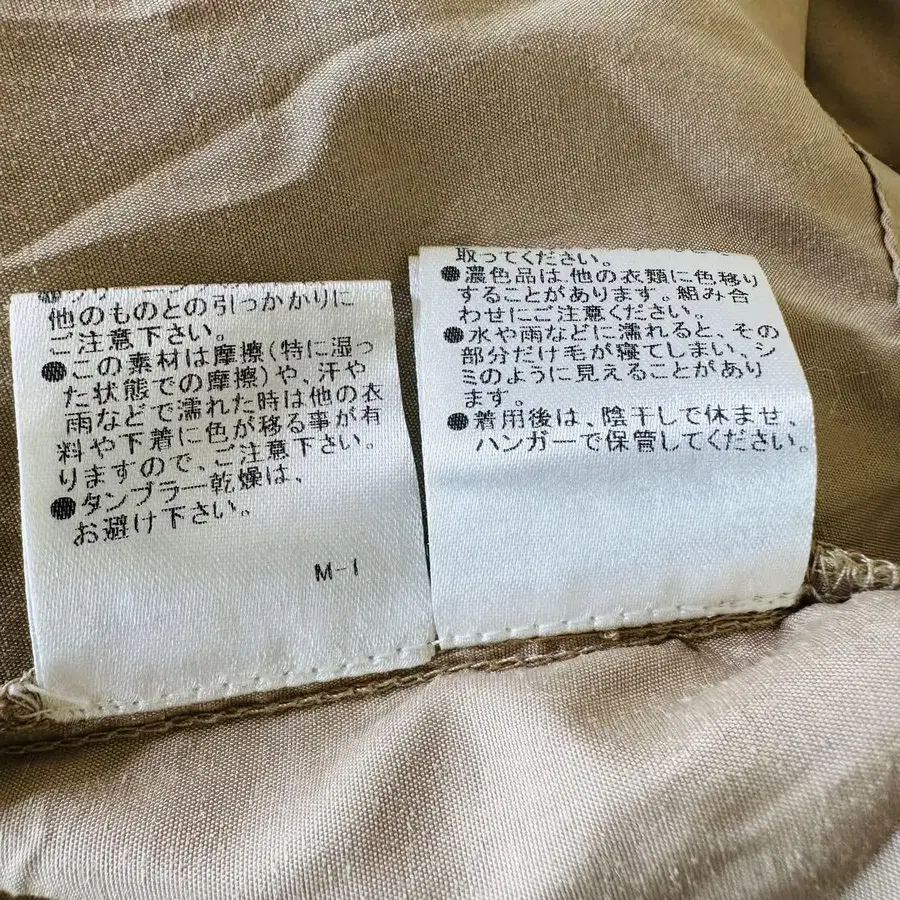 他のものとの引っかかりに
ご注意下さい。
●この素材は摩擦(特に湿っ
た状態での摩擦)や、汗や
雨などで濡れた時は他の衣
料や下着に色が移る事が有
りますので、ご注意下さい。
●タンブラー乾燥は、
お避け下さい。
M-1
取ってください。
●濃色品は他の衣類に色移り
することがあります。組み合
わせにご注意ください。
●水や雨などに濡れると、その
部分だけ毛が寝てしまい、シ
ミのように見えることがあり
ます。
●着用後は、陰干しで休ませ、
ハンガーで保管してください。